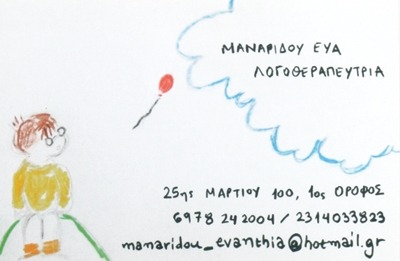 ΜΑΝΑΡΙΔΟΥ ΕΥΑ
ΛΟΓΟΘΕΡΑΠΕΥΤΡΙΑ
25ης ΜΑΡΤΙΟΥ 100, 1ος ΟΡΟΦΟΣ
6978 242004 / 2314033823
manaridou_evanthia@hotmail.gr